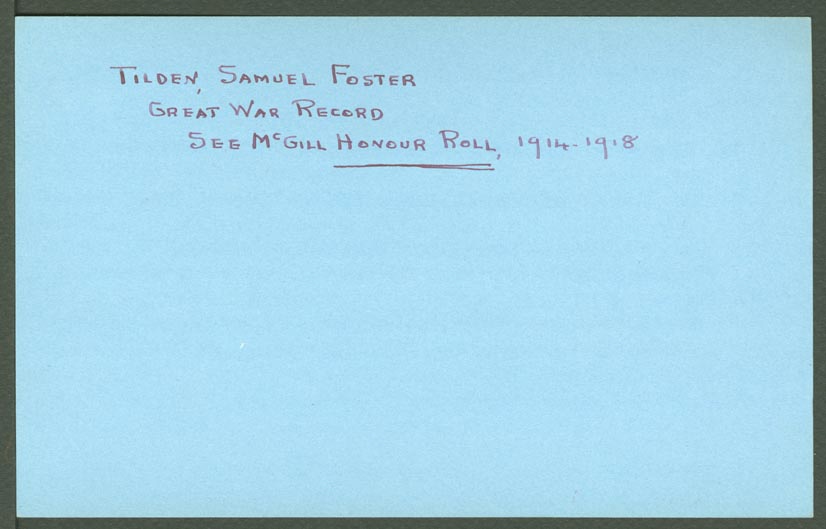 TILDEN, SAMUEL FOSTER
GREAT WAR RECORD
SEE McGILL HONOUR ROLL, 1914-1918